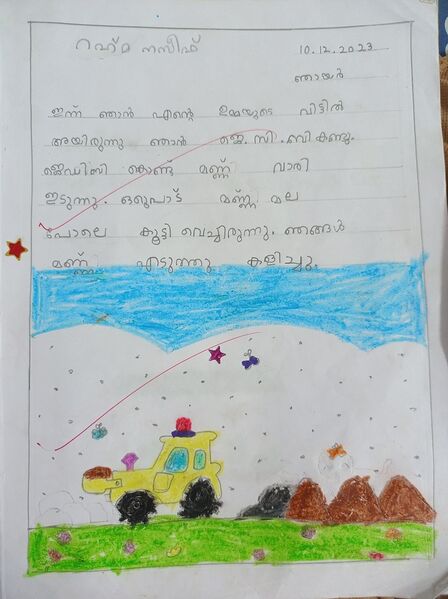 റഹ്മ നസീഫ് 10.12.2023
ഞായർ
ഇന്ന് ഞാൻ എന്റെ ഉമ്മയുടെ വിട്ടിൽ
അയിരുന്നു ഞാൻ ജെ.സി.ബി കണ്ടു.
ജെസിബി കൊണ്ട് മണ്ണ് വാരി
ഇടുന്നു. ഒരുപാട് മണ്ണ് മല
പോലെ കൂട്ടി വെച്ചിരുന്നു. ഞങ്ങൾ
മണ്ണ് എടുത്തു കളിച്ചു.